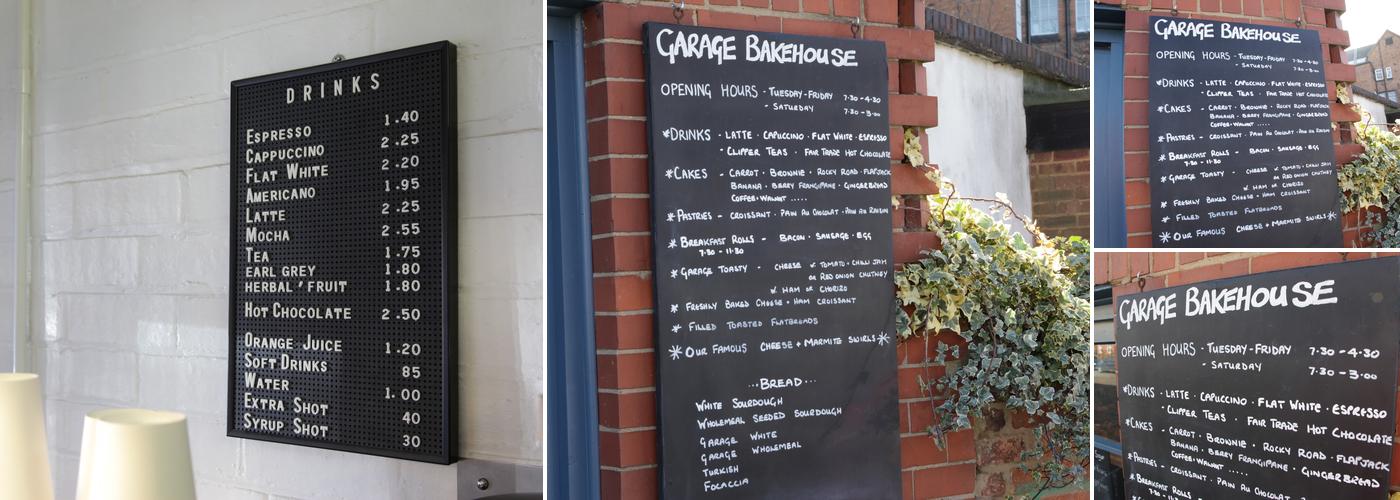 DRINKS
ESPRESSO 1.40
CAPPUCCINO 2.25
FLAT WHITE 2.20
AMERICANO 1.95
LATTE 2.25
MOCHA 2.55
TEA 1.75
EARL GREY 1.80
HERBAL ' FRUIT 1.80
HOT CHOCOLATE 2.50
ORANGE JUICE 1.20
SOFT DRINKS 85
WATER 1.00
EXTRA SHOT 40
SYRUP SHOT 30
GARAGE BAKEHOUSE
OPENING HOURS - TUESDAY-FRIDAY 7.30-4.30
- SATURDAY 7.30-3.00
*DRINKS - LATTE · CAPUCCINO · FLAT WHITE · ESPRESSO
- CLIPPER TEAS · FAIR TRADE HOT CHOCOLATE
*CAKES - CARROT · BROWNIE · ROCKY ROAD · FLAPJACK
BANANA · BERRY FRANGIPANE · GINGERBREAD
COFFEE+WALNUT .....
*PASTRIES - CROISSANT · PAIN AU CHOCOLAT · PAIN AU RAISIN
*BREAKFAST ROLLS - BACON · SAUSAGE · EGG
7.30 - 11.30
*GARAGE TOASTY - CHEESE w TOMATO + CHILLI JAM
OR RED ONION CHUTNEY
w HAM OR CHORIZO
* FRESHLY BAKED CHEESE + HAM CROISSANT
* FILLED TOASTED FLATBREADS
* OUR FAMOUS CHEESE + MARMITE SWIRLS *
...BREAD...
WHITE SOURDOUGH
WHOLEMEAL SEEDED SOURDOUGH
GARAGE WHITE
GARAGE WHOLEMEAL
TURKISH
FOCACCIA
GARAGE BAKEHOUSE
OPENING HOURS - TUESDAY-FRIDAY 7.30-4.30
- SATURDAY 7.30-3.00
*DRINKS - LATTE · CAPUCCINO · FLAT WHITE · ESPRESSO
- CLIPPER TEAS · FAIR TRADE HOT CHOCOLATE
*CAKES - CARROT · BROWNIE · ROCKY ROAD · FLAPJACK
BANANA · BERRY FRANGIPANE · GINGERBREAD
COFFEE+WALNUT .....
*PASTRIES - CROISSANT · PAIN AU CHOCOLAT · PAIN AU RAISIN
*BREAKFAST ROLLS - BACON · SAUSAGE · EGG
7.30 - 11.30
*GARAGE TOASTY - CHEESE w TOMATO + CHILLI JAM
OR RED ONION CHUTNEY
w HAM OR CHORIZO
* FRESHLY BAKED CHEESE + HAM CROISSANT
* FILLED TOASTED FLATBREADS
* OUR FAMOUS CHEESE + MARMITE SWIRLS *
GARAGE BAKEHOUSE
OPENING HOURS - TUESDAY-FRIDAY 7.30-4.30
- SATURDAY 7.30-3.00
*DRINKS - LATTE · CAPUCCINO · FLAT WHITE · ESPRESSO
- CLIPPER TEAS · FAIR TRADE HOT CHOCOLATE
*CAKES - CARROT · BROWNIE · ROCKY ROAD · FLAPJACK
BANANA · BERRY FRANGIPANE · GINGERBREAD
COFFEE+WALNUT .....
*PASTRIES - CROISSANT · PAIN AU CHOCOLAT · PAIN AU
*BREAKFAST ROLLS - BACON · SAUSAGE · EGG
7.30 - 11.30